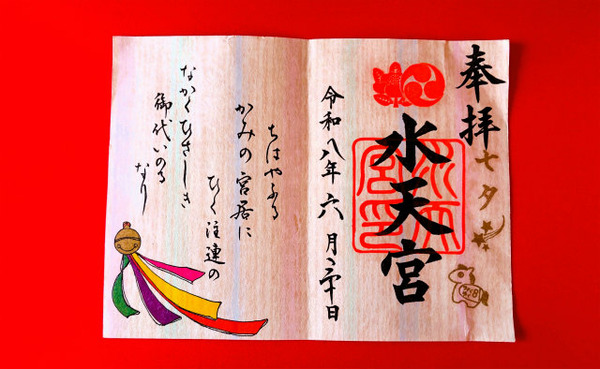 奉拝
七夕
水天宮
令和八年 六月二十日
ちはやふる
かみの宮居に
ひく注連の
なかくひさしき
御代いのる
なり